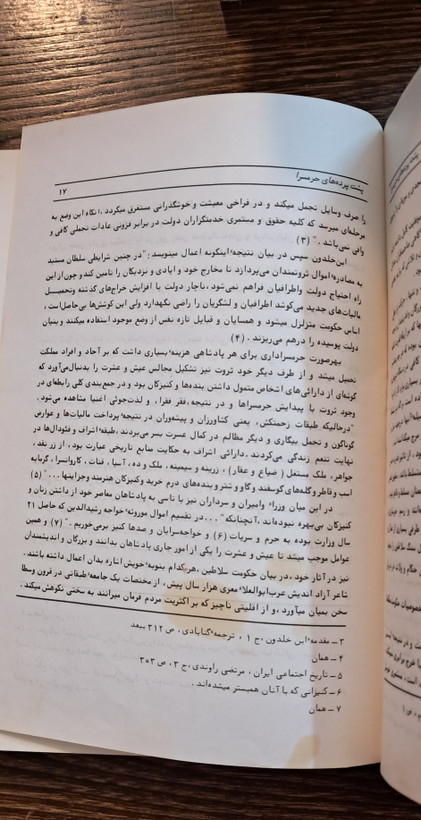 پشت پرده‌های حرمسرا
۱۷
را صرف وسایل تجمل میکند و در فراخی معیشت و خوشگذرانی مستغرق میگردد، آنگاه این وضع به
مرحله‌ای میرسد که کلیه حقوق و مستمری خدمتگزاران دولت در برابر فزونی عادات تجملی کافی و
وافی نمی‌باشد." (۳)
ابن‌خلدون سپس در بیان نتیجهٔ اینگونه اعمال مینویسد: "در چنین شرایطی سلطان مستبد
به مصادرهٔ اموال ثروتمندان می‌پردازد تا مخارج خود و ایادی و نزدیکان را تامین کند و چون از این
راه احتیاج دولت واطرافیان فراهم نمی‌شود، ناچار دولت با افزایش خراج‌های گذشته وتحمیل
مالیات‌های جدید می‌کوشد اطرافیان و لشگریان را راضی نگهدارد ولی این کوشش‌ها بی‌حاصل است،
اساس حکومت متزلزل میشود و همسایان و قبایل تازه نفس از وضع موجود استفاده میکنند و بنیان
دولت پوسیده را درهم می‌ریزند. (۴)
بهرصورت حرمسراداری برای هر پادشاهی هزینهٔ بسیاری داشت که بر آحاد و افراد مملکت
تحمیل میشد و از طرف دیگر خود ثروت نیز تشکیل مجالس عیش و عشرت را بدنبال می‌آورد که
گوشه‌ای از دارائی‌های اشخاص متمول داشتن بنده‌ها و کنیزکان بود و در جمع‌بندی کلی رابطه‌ای در
وجود ثروت با پیدایش حرمسراها و در نتیجه، فقر فقرا، و لذت‌جوئی اغنیا مشاهده می‌شود.
"درحالیکه طبقات زحمتکش، یعنی کشاورزان و پیشه‌وران در نتیجهٔ پرداخت مالیات‌ها و عوارض
گوناگون و تحمل بیگاری و دیگر مظالم در کمال عسرت بسر می‌بردند، طبقهٔ اشراف و فئودال‌ها در
نهایت تنعم زندگی می‌کردند. دارائی اشراف به حکایت منابع تاریخی عبارت بود، از زر نقد،
جواهر، ملک مستغل (ضیاع و عقار)، زرینه و سیمینه، ملک و ده، آسیا، قنات، کاروانسرا، گرمابه
اسب و قاطر و گله‌های گوسفند و گاو و شتر و بنده‌های درم خرید و کنیزکان هنرمند و جزاینها ..." (۵)
در این میان وزرا و امیران و سرداران نیز با تاسی به پادشاهان معاصر خود از داشتن زنان و
کنیزکان بی‌بهره نبوده‌اند، آنچنانکه "... در تقسیم اموال موروثه خواجه رشیدالدین که حاصل ۲۱
سال وزارت بوده به حرم و سریات (۶) و خواجه‌سرایان و صدها کنیز برمی‌خوریم." (۷) و همین
عوامل موجب میشد تا عیش و عشرت را یکی از امور جاری پادشاهان بدانند و بزرگان و اندیشمندان
نیز در آثار خود، در بیان حکومت سلاطین، هریکدام بنوبهٔ خویش اشاره بدان اعمال داشته باشند.
شاعر آزاد اندیش عرب ابوالعلاء معری هزار سال پیش، از مختصات یک جامعهٔ طبقاتی در قرون وسطا
سخن بمیان میآورد، و از اقلیتی ناچیز که بر اکثریت مردم فرمان میرانند به سختی نکوهش میکند.
۳ – مقدمهٔ ابن خلدون، ج ۱، ترجمهٔ گنابادی، ص ۳۱۲ ببعد
۴ – همان
۵ – تاریخ اجتماعی ایران، مرتضی راوندی، ج ۳، ص ۳۰۳
۶ – کنیزانی که با آنان همبستر میشده‌اند.
۷ – همان